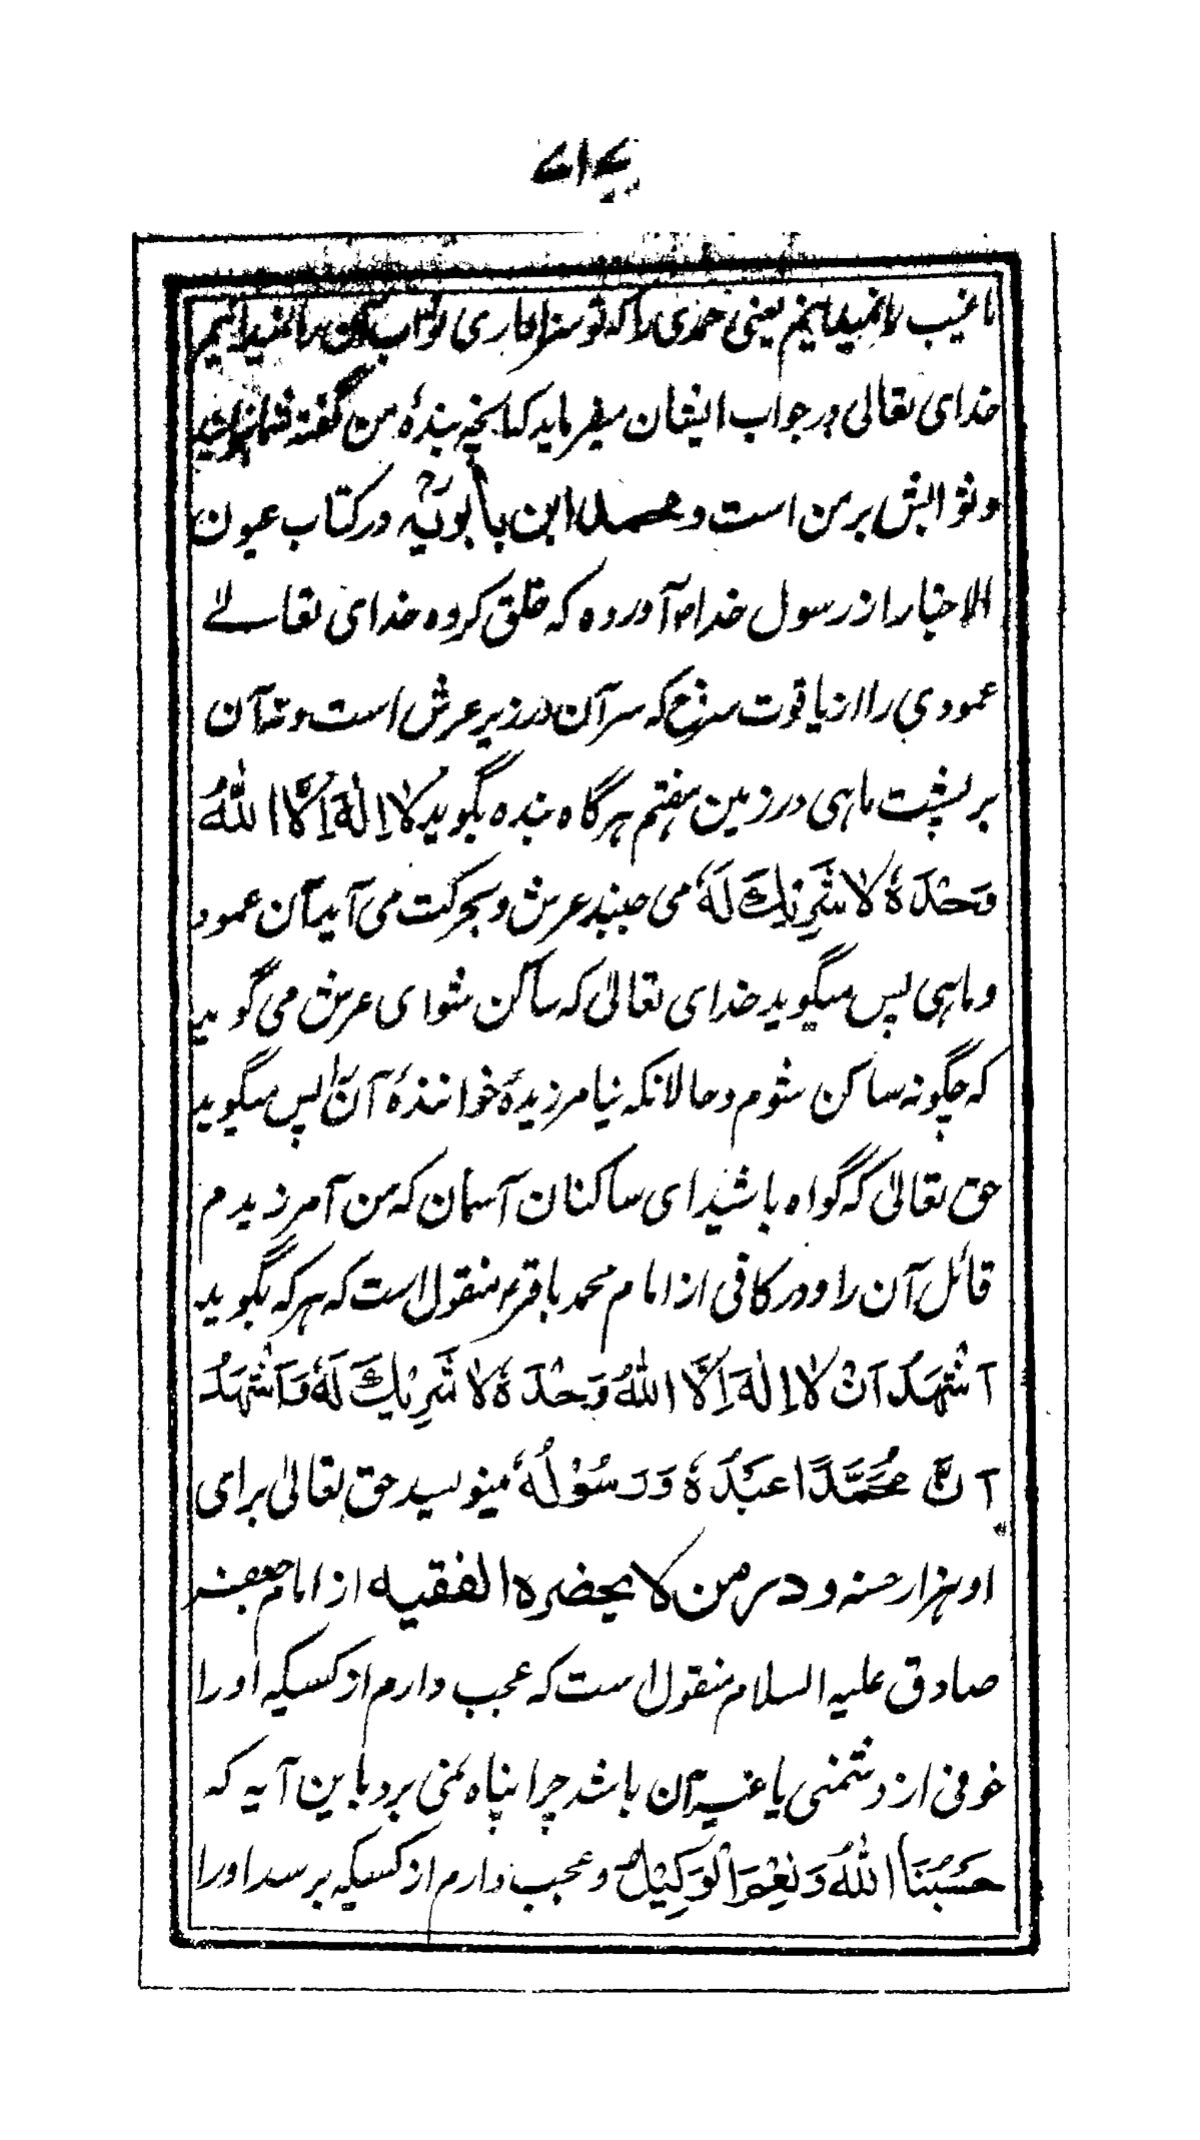 ما غیب را نمیدانیم یعنی حمدی را که تو سزاواری ثواب آن را نمیدانیم
خدای تعالی در جواب ایشان میفرماید که انچه بندهٔ من گفته شما بنویسید
و ثوابش بر من است و محمد ابن بابویهؒ در کتاب عیون
الاخبار از رسول خدا ص آورده که خلق کرده خدای تعالے
عمودی را از یاقوت سرخ که سر آن در زیر عرش است و ته آن
بر پشت ماهی در زمین هفتم هرگاه بنده بگوید لَا اِلٰهَ اِلَّا اللّٰهُ
وَحْدَهٗ لَا شَرِیْكَ لَهٗ می جنبد عرش و بحرکت می آید آن عمود
و ماهی پس میگوید خدای تعالیٰ که ساکن شو ای عرش می گوید
که چگونه ساکن شوم و حالانکه نیامرزیدهٔ خوانندهٔ آن را پس میگوید
حق تعالیٰ که گواه باشید ای ساکنان آسمان که من آمرزیدم
قائل آن را و در کافی از امام محمد باقر ع منقول است که هر که بگوید
اَشْهَدُ اَنْ لَا اِلٰهَ اِلَّا اللّٰهُ وَحْدَهٗ لَا شَرِیْكَ لَهٗ وَ اَشْهَدُ
اَنَّ مُحَمَّدًا عَبْدُهٗ وَ رَسُوْلُهٗ مینویسد حق تعالیٰ برای
او هزار حسنه و در من لا یحضره الفقیه از امام جعفر
صادق علیه السلام منقول است که عجب دارم از کسیکه او را
خوفی از دشمنی یا غیر آن باشد چرا پناه نمی برد باین آیه که
حَسْبُنَا اللّٰهُ وَ نِعْمَ الْوَكِیْلُ و عجب دارم از کسیکه برسد او را